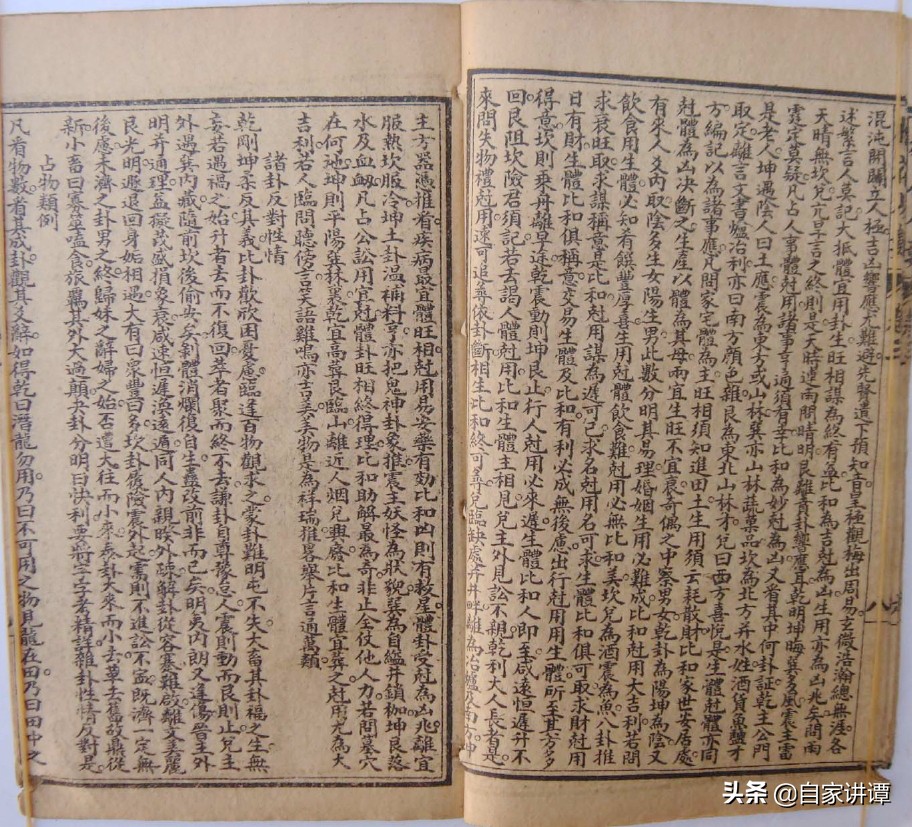 混沌開闢立人極吉凶響應尤難避先賢遺下預知音皇極觀梅出周易玄微浩瀚總無涯各
述繁言人莫記大抵體宜用卦生旺相謀為終有益比和為吉尅為凶生用亦為凶兆矣問雨
天晴無坎兌亢旱言之終則是天時連雨問晴明艮離賁卦響應耳乾明坤晦巽多風震主雷
霆定莫疑凡占人事體尅用諸事亨通須有幸比和為妙尅為凶又看其中何卦証乾主公門
是老人坤遇陰人曰土應震為東方或山林巽亦山林蔬菓品坎為北方并水姓酒貨魚鹽才
取定離言文書爐冶利亦曰南方顏色雜艮為東北山林才兌曰西方喜悅是生體尅體亦同
方編記以為諸事應凡問家宅體為主旺相須知進田土生用須云耗散財比和家世安居處
尅體為凶決斷之生產以體為其母兩宜生旺不宜衰奇偶之中察男女乾卦為陽坤為陰又
有來人爻內取陰多生女陽生男此數分明其易理婚姻生用必難成比和尅用大吉利若問
飲食用生體必知肴饌豐厚喜生用尅體飲食難尅用必無比和美坎兌為酒震為魚八卦推
求衰旺取求謀稱意是比和尅用謀為遲可已求名尅用名可求生體比和俱可取求財尅用
日有財生體比和俱稱意交易生體及比和有利必成無後慮出行尅用用生體所至其方多
得意坎則乘舟離早途乾震動則坤艮止行人尅用必來遲生體比和人即至咸遠恒遲升不
回艮阻坎險君須記若去謁人體尅用比和生體主相見兌主外見訟不親乾利大人長者是
來問失物體尅用遠可追尋依卦斷相生比和終可尋兌臨缺處井井畔離為冶爐及南方坤
主方器憑推看疾病最宜體旺相尅用易安藥有効比和凶則有救星體卦受尅為凶兆離宜
服熱坎服冷坤土卦溫補料亨亦把鬼神卦象推震主妖怪為狀貌巽為自縊并鎖枷坤艮落
水及血衂凡占公訟用宜尅體卦旺相終得理比和助解最為奇非止全仗他人力若問墓穴
在何地坤則平陽巽林裏乾宜高葬艮臨山離近人烟兌興廢比和生體宜葬之尅用尤為大
吉利若人臨問聽傍言笑語雞鳴亦吉美美物是為祥瑞推畧舉片言通萬類
諸卦反對性情
乾剛坤柔反其義比卦歡欣困憂慮臨逢百物觀求之蒙卦難明屯不失大畜其卦福之生無
妄若遇禍之始升者去而不復回萃者聚而終不去謙卦自尊豫怠人震則動而艮則止兌主
外遇巽內藏隨前坎後偷安矣剝體消爛復自生蠱改前非而已矣明夷內朗又逢傷晉主外
明并通理益擬茂盛損象衰咸速恒遲渙遠遁同人內親睽外疎解卦從容蹇難啟離文美麗
艮光明遯退回身姤相遇大有曰眾豐曰多坎卦後險震外起需則不進訟不寧既濟一定無
後慮未濟之卦男之終歸妹之辭婦之始否遭大往而小來泰卦大來而小去革去舊故鼎從
新小畜曰寡噬嗑食旅羈其外大過顛夬卦分明曰快利要將字字考精詳雜卦性情反對是
占物類例
凡看物數者其成卦觀其爻辭如得乾曰潛龍勿用乃曰不可用之物見龍在田乃曰田中之
头条 @自家讲谭